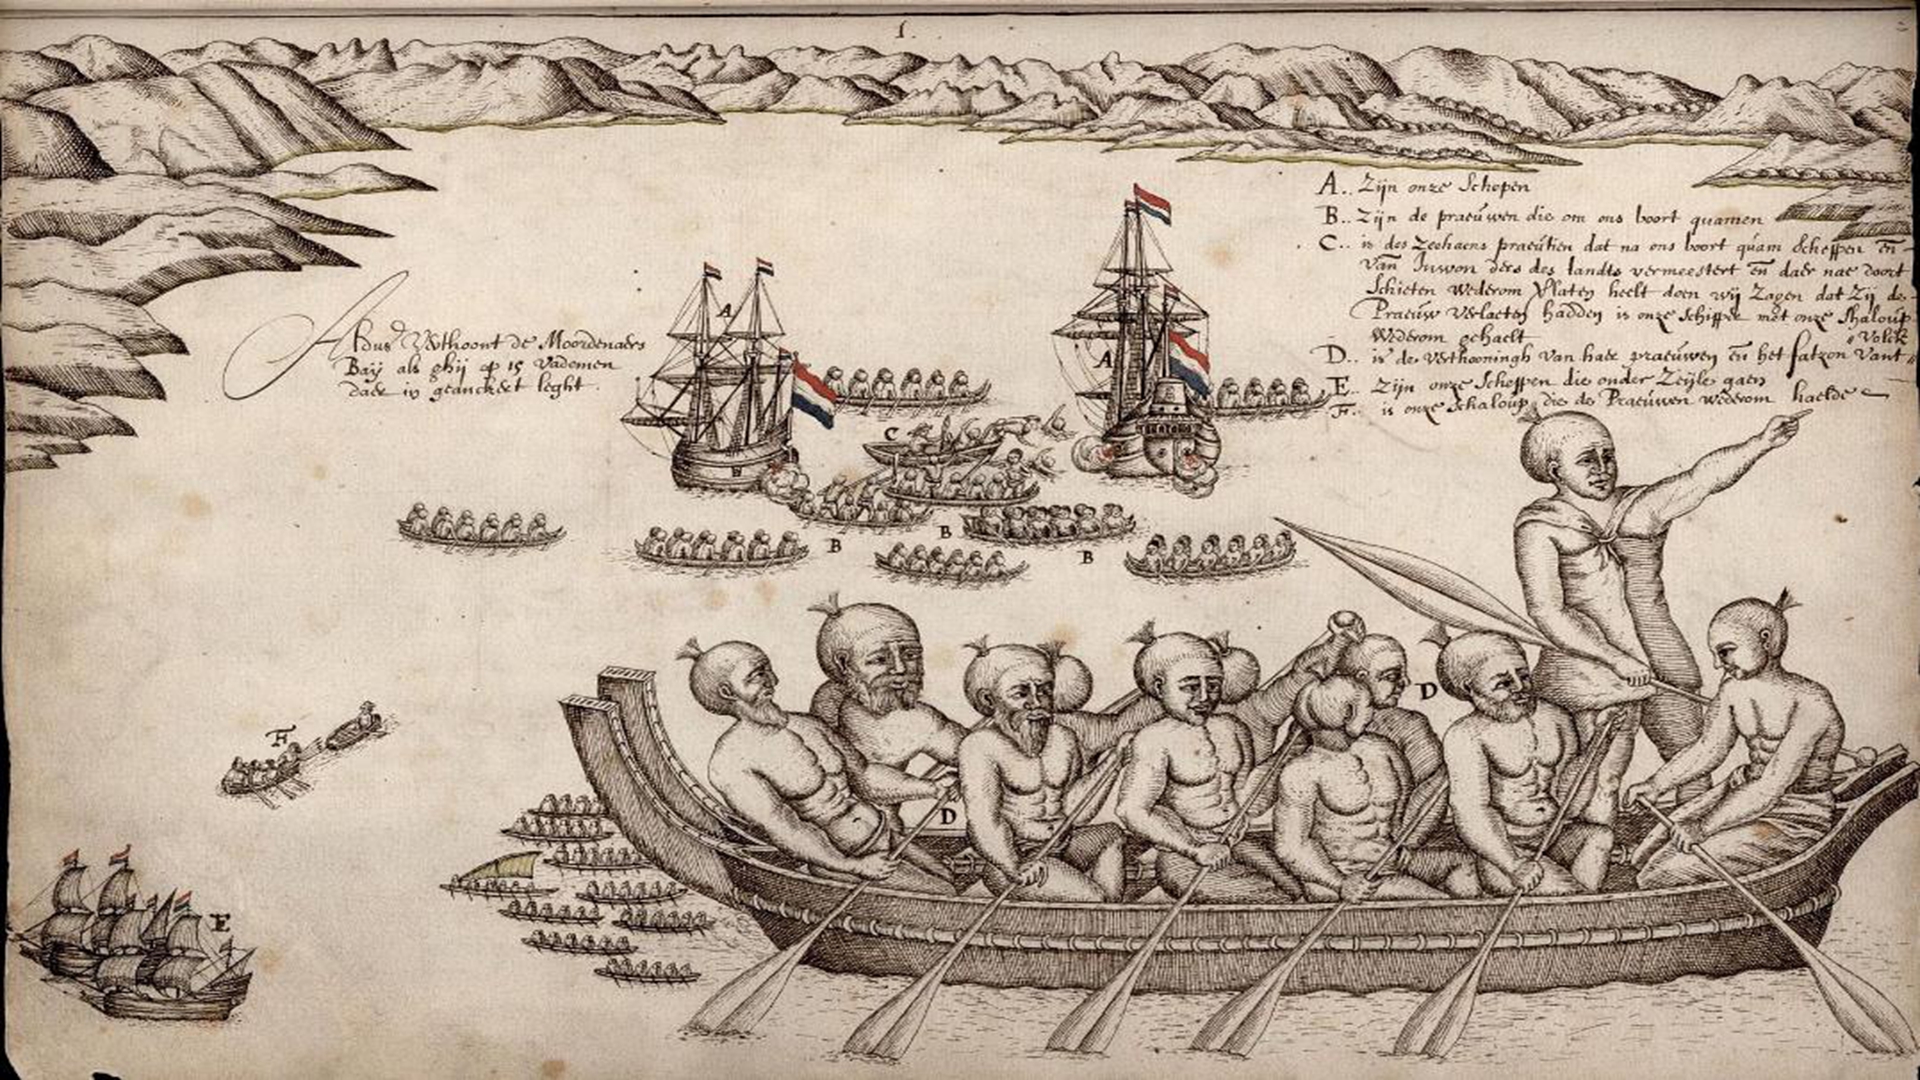 1.
A.. Zijn onze Schepen
B.. Zijn de praeuwen die om ons boort quamen
C.. is des Zeehaens praeutien dat na ons boort quam Scheppen en
van Inwon ders des landts vermeestert en daer nae doort
Schieten wederom Verlaten heelt doen wij Zagen dat Zij de
Praeuw Verlaeten hadden is onze Schipper met onze Shaloup
Wederom gehaelt
D.. is de Verthooningh van haer praeuwen en het fatzon vant Volck
E.. Zijn onze Scheppen die onder Zeijle gaen
F.. is onze Schaloup die de Praeuwen wederom haelde
A
Aldus Verthoont de Moordenaers
Bay als ghij op 15 Vademen
daer in geanckert leght.
A
C
B
B
B
D
F
D
E